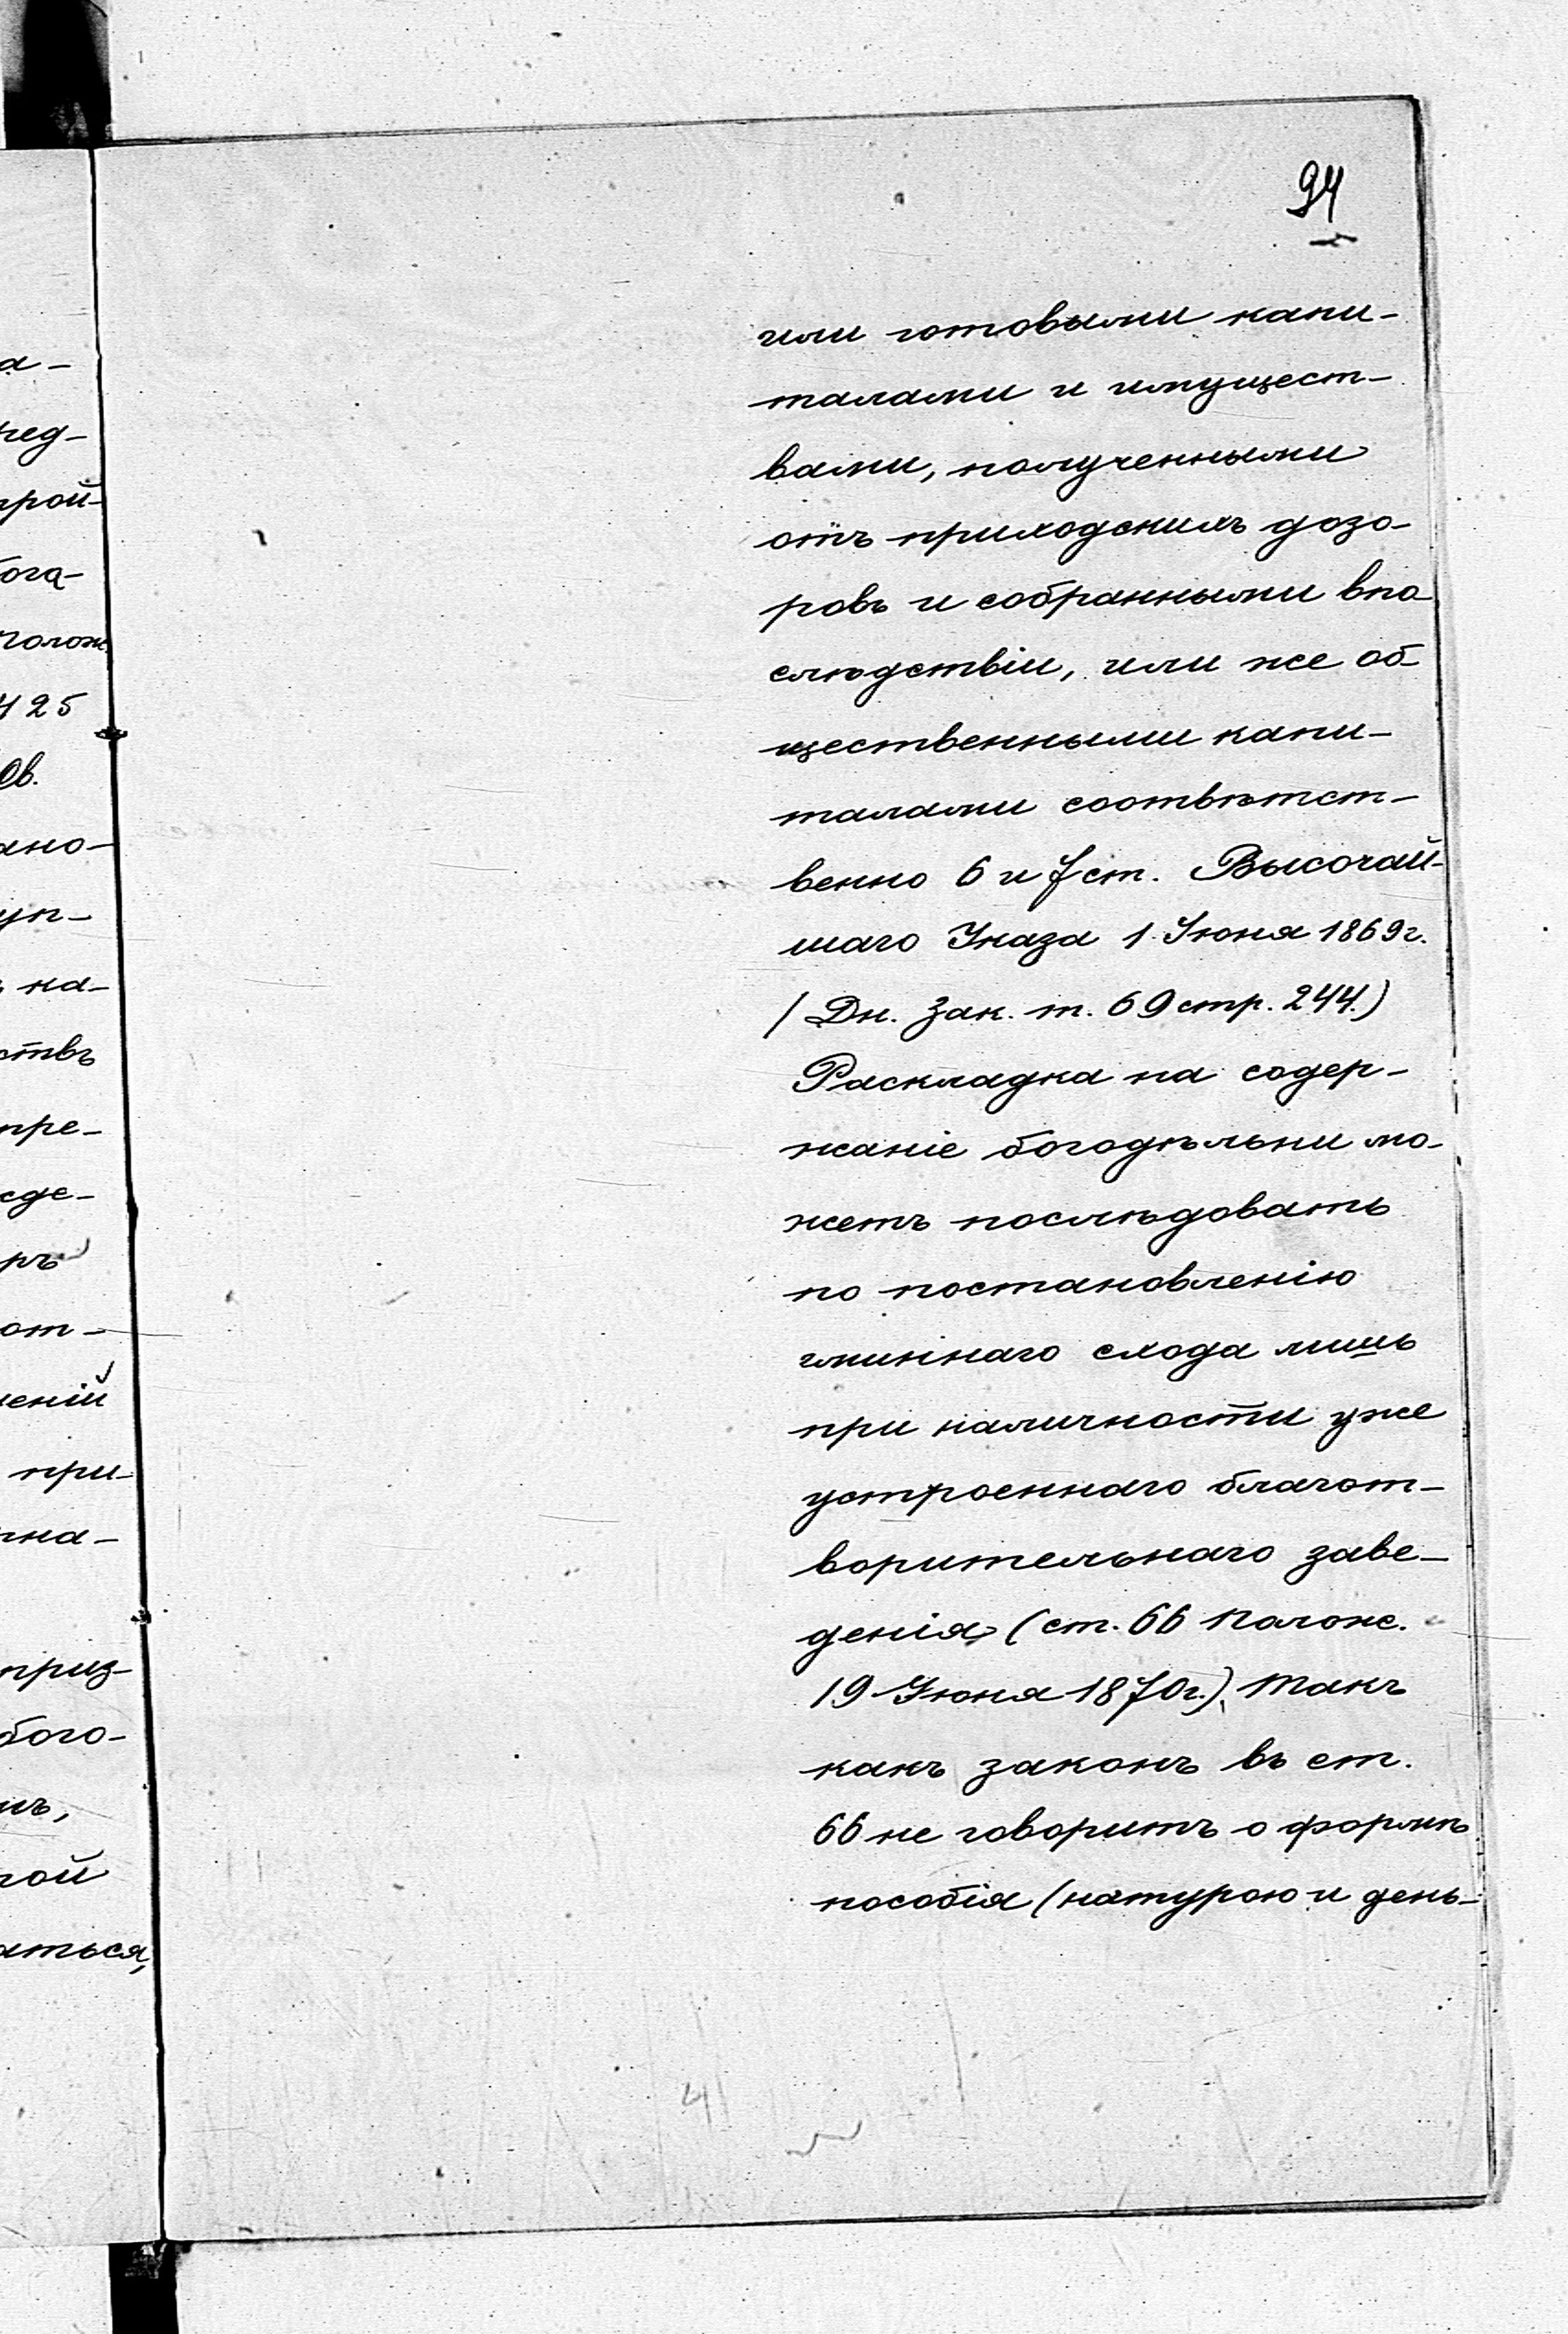 94
или готовыми капи-
талами и имущест-
вами, полученными
отъ приходскихъ дозо-
ровъ и собранными впо-
слѣдствіи, или же об-
щественными капи-
талами соотвѣтст-
венно 6 и 7 ст. Высочай-
шаго Указа 1 Іюня 1869 г.
(Дн. Зак. т. 69 стр. 244.)
Раскладка на содер-
жаніе богодѣльни мо-
жетъ послѣдовать
по постановленію
гминнаго схода лишь
при наличности уже
устроеннаго благот-
ворительнаго заве-
денія (ст. 66 Полож.
19 Іюня 1870 г.). Такъ
какъ законъ въ ст.
66 не говоритъ о формѣ
пособія (натурою и день-